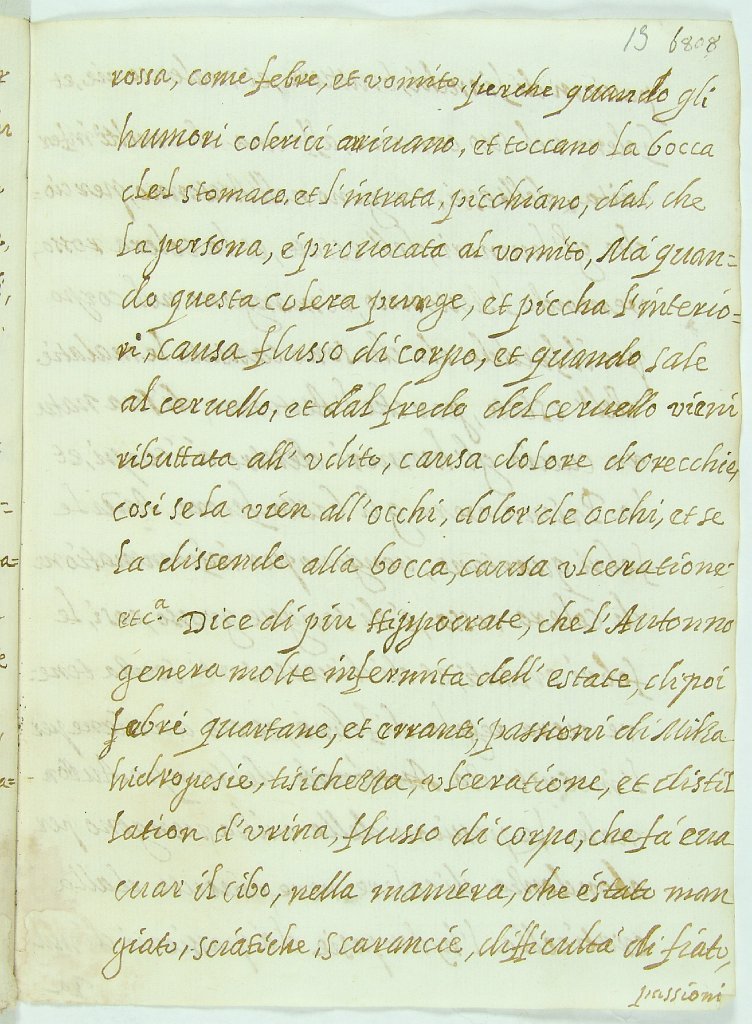 19 6808
rossa, come febre, et vomito, perche quando gli
humori colerici arrivano, et toccano la bocca
del stomaco, et l'intrata, picchiano, dal, che
la persona, é provocata al vomito, Má quan=
do questa colera punge, et piccha l'interio=
ri, causa flusso di corpo, et quando sale
al cervello, et dal fredo del cervello vieni
ributtata all'udito, causa dolore d'orecchie,
cosi se la vien all'occhi, dolor'de occhi, et se
la discende alla bocca, causa vlceratione
etc.ª Dice di piu Hippocrate, che l'Autonno
genera molte infermita dell'estate, dipoi
febri quartane, et erranti, passioni di Milza
hidropesie, tisichezza, vlceratione, et distil
lation d'vrina, flusso di corpo, che fá eva
cuar il cibo, nella maniera, che é stato man
giato, sciatiche, scarancie, difficultá di fiato,
passioni